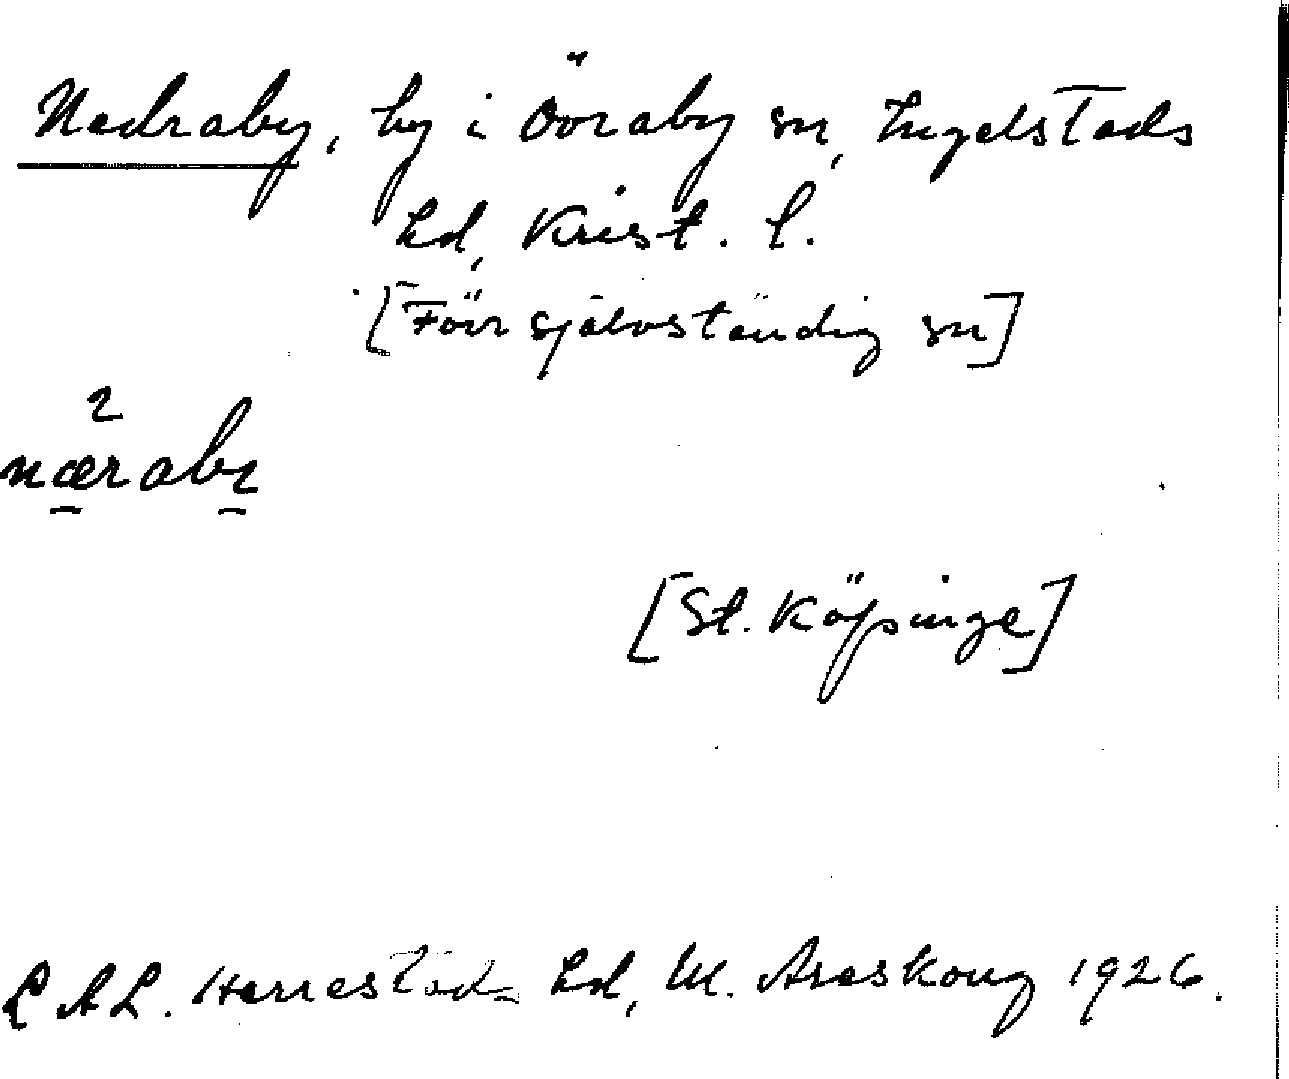 Nedraby, by i Övraby sn, Ingelstads
hd, Krist. l.
[Förr självständig sn]
2
næraby
[St. Köpinge]
LAL. Herrestads hd, M. Areskoug 1926.